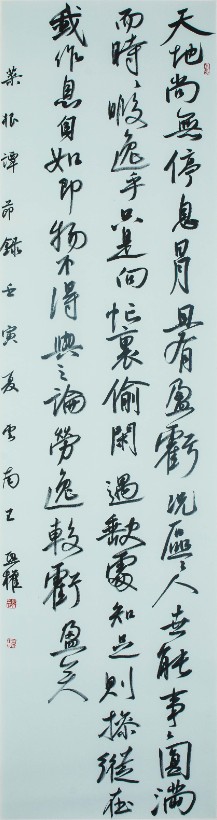 天地尚無停息日月且有盈虧況區〻人世能事〻圓滿
而時〻暇逸乎只是向忙裏偷閑遇缺處知足則操縱在
我作息自如即物不得與之論勞逸較虧盈矣
菜根譚節錄壬寅夏雲南王